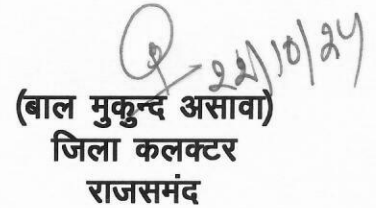 22/10/24
(बाल मुकुन्द असावा)
जिला कलक्टर
राजसमंद